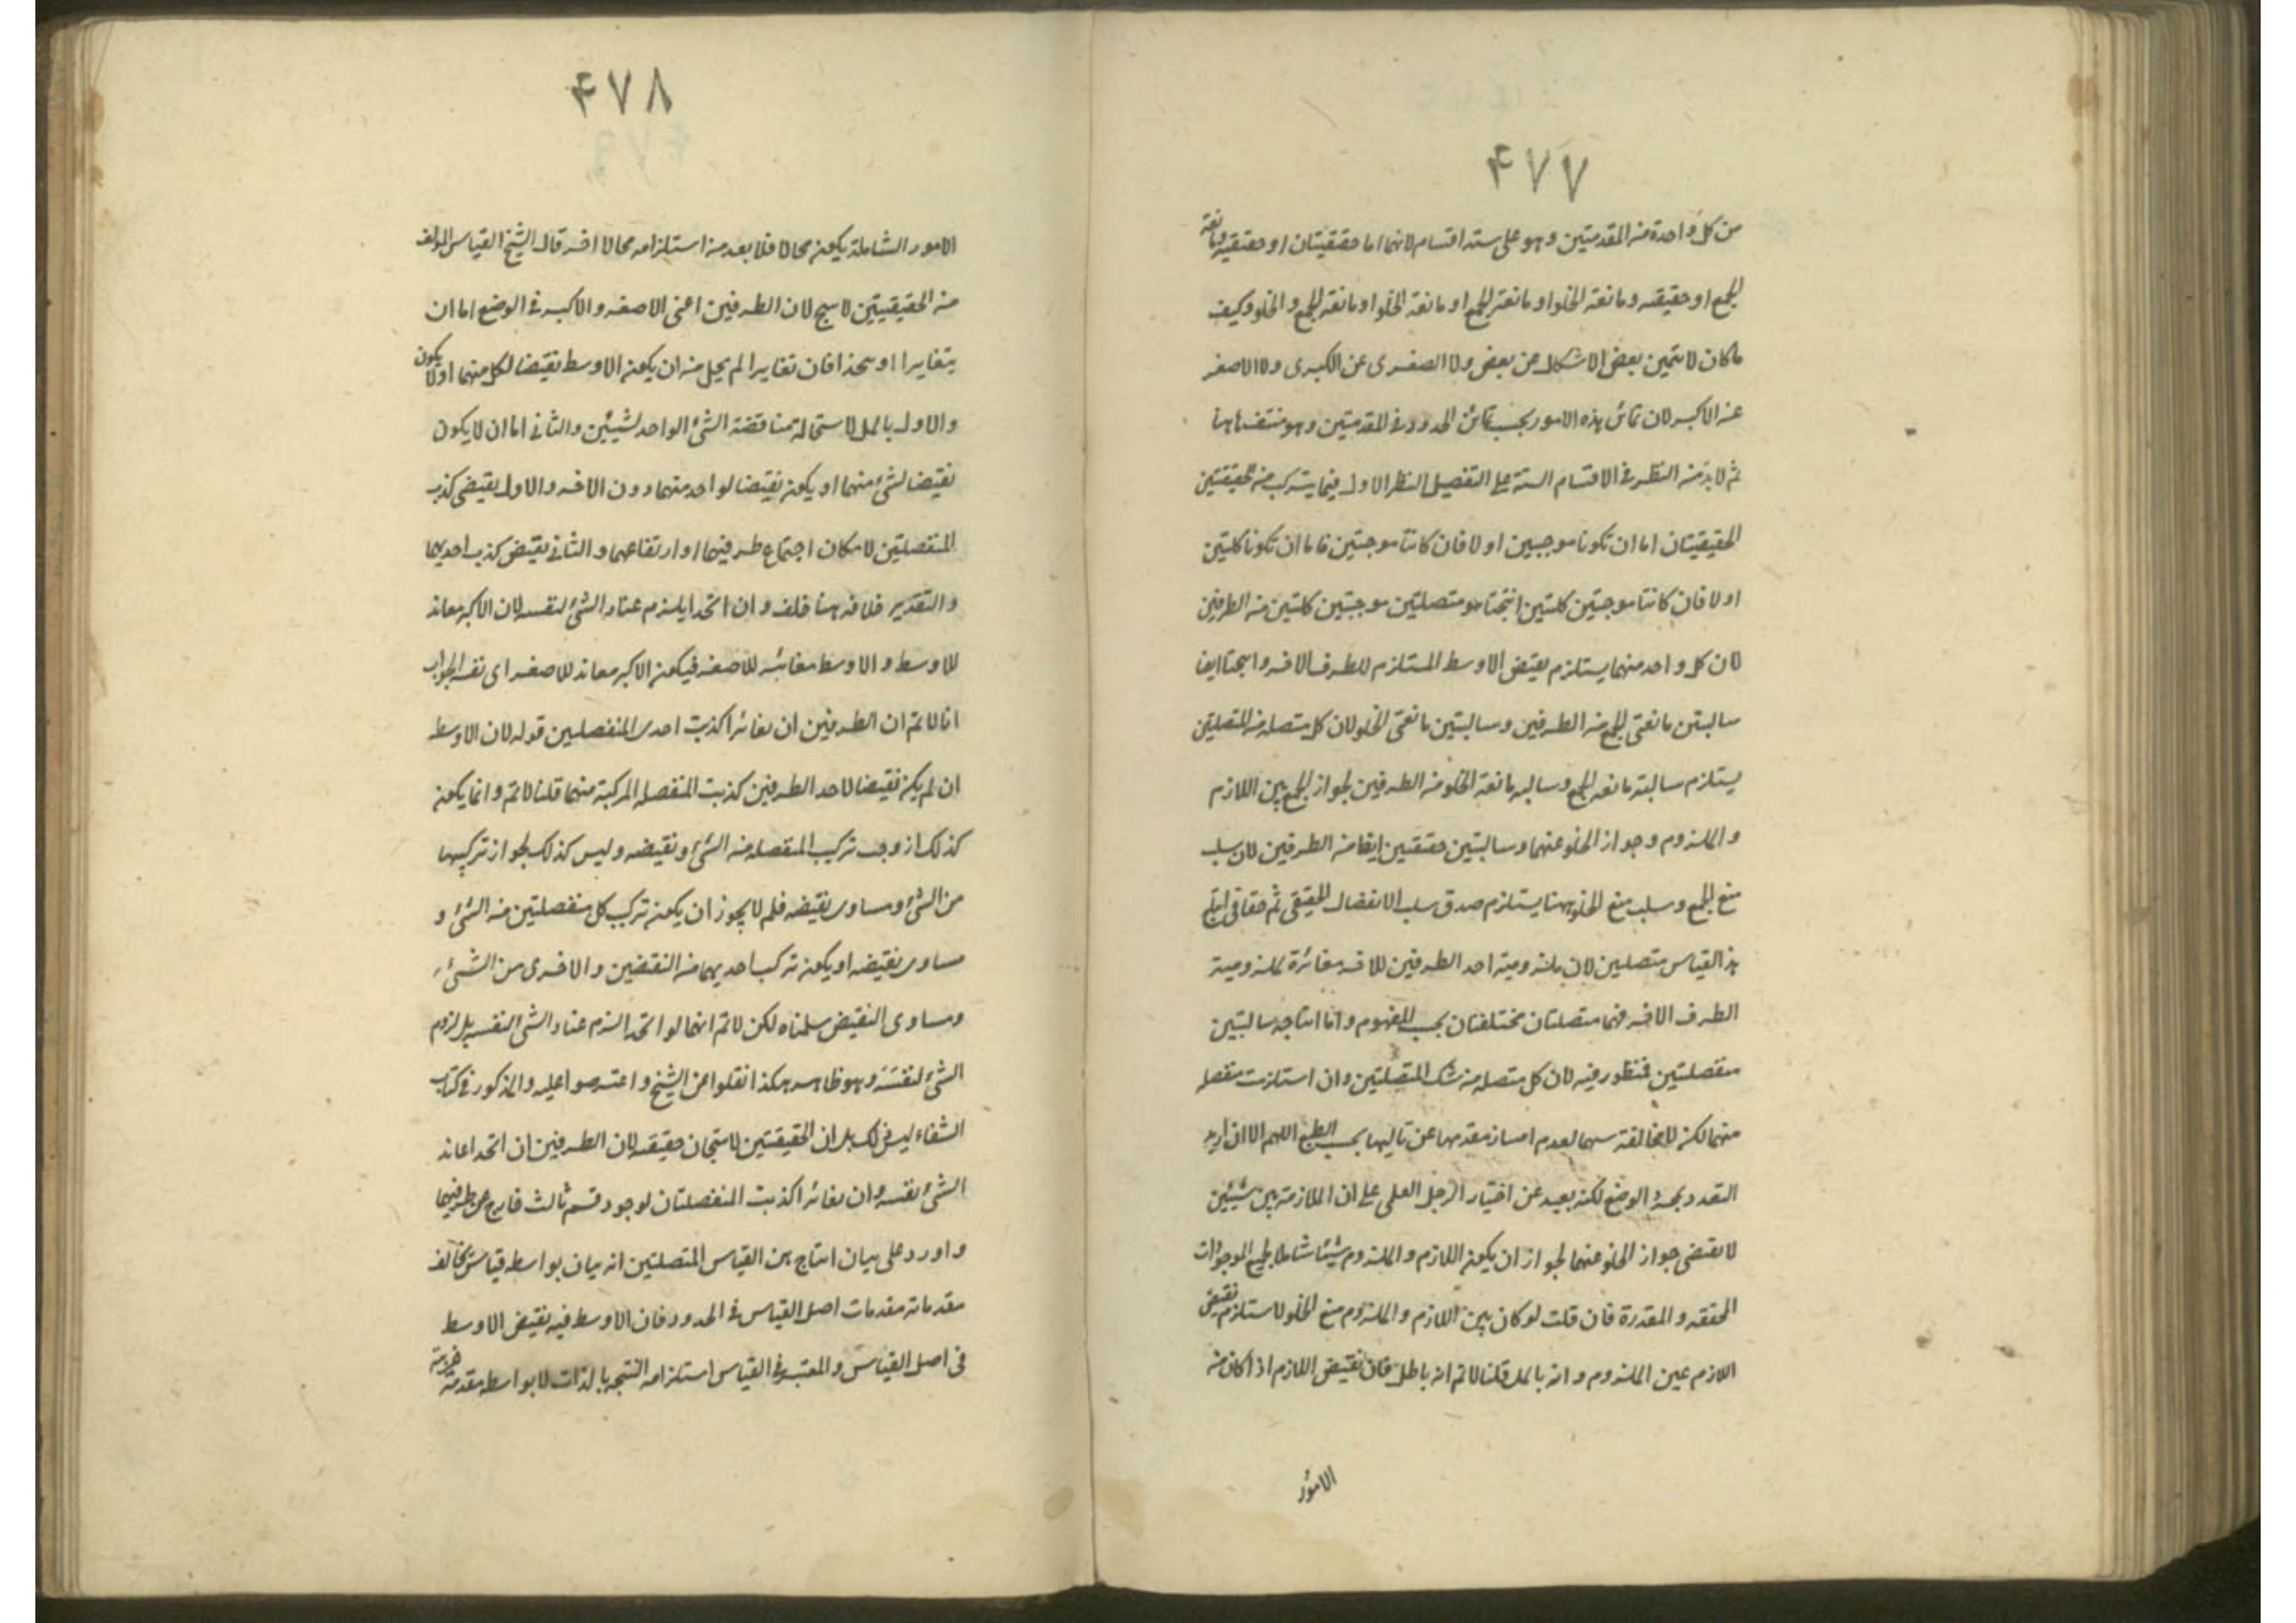 ٤٧٧
من كل واحدة من المقدمتين وهو على ستة اقسام لانهما اما حقيقيتان او حقيقية ومانعة
الجمع او حقيقيه ومانعة الخلو او مانعتى الجمع او مانعة الخلو او مانعة الجمع والخلو وكيف
ما كان لا يتميز بعض الاشكال عن بعض ولا الصغرى عن الكبرى ولا الاصغر
عن الاكبر لان تمائز هذه الامور بحسب تمائز الحدود فى المقدمتين وهو منتف هاهنا
ثم لا بد من النظر فى الاقسام الستة على التفصيل النظر الاول فيما يتركب من حقيقيتين
الحقيقيتان اما ان تكونا موجبتين او لا فان كانتا موجبتين فاما ان تكونا كليتين
او لا فان كانتا موجبتين كليتين انتجتا متصلتين موجبتين كليتين من الطرفين
لان كل واحد منهما يستلزم نقيض الاوسط المستلزم للطرف الاخر وانتجتا ايضا
سالبتين مانعتى الجمع من الطرفين وسالبتين مانعتى الخلو لان كل متصلة من المتصلتين
يستلزم سالبة مانعة الجمع وسالبه مانعة الخلو من الطرفين لجواز الجمع بين اللازم
والملزوم وجواز الخلو عنهما وسالبتين حقيقيتين ايضا من الطرفين لان سلب
منع الجمع وسلب منع الخلو يستلزم صدق سلب الانفصال الحقيقى ثم حققا فى انتاج
هذا القياس متصلتين لان ملزومية احد الطرفين للاخر مغائرة لملزومية
الطرف الاخر فهما متصلتان مختلفتان بحسب المفهوم واما انتاجه سالبتين
منفصلتين فمنظور فيه لان كل متصله من تينك المتصلتين وان استلزمت منفصله
منهما لكن لا مخالفة بينهما لعدم امتياز مقدمها عن تاليها بحسب الطبع اللهم الا ان اريد
التعدد بمجرد الوضع لكنه بعيد عن اختيار الرجل العلمى على ان الملازمة بين شيئين
لا يقتضى جواز الخلو عنهما لجواز ان يكون اللازم والملزوم شيئا شاملا لجميع الموجودات
المحققه والمقدرة فان قلت لو كان بين اللازم والملزوم منع الخلو لاستلزم نقيض
اللازم عين الملزوم وانه باطل قلنا لا نم انه باطل فان نقيض اللازم اذا كان من
الامور
٤٧٨
الامور الشاملة يكون محالا فلا بعد من استلزامه محالا اخر قال الشيخ القياس المولف
من الحقيقيتين لا ينتج لان الطرفين اعنى الاصغر والاكبر فى الوضع اما ان
يتغايرا او يتحدا فان تغايرا لم يخل من ان يكون الاوسط نقيضا لكل منهما او لا يكون
والاول باطل لاستحالة مناقضة الشئ الواحد لشيئين والثانى اما ان لا يكون
نقيضا لشئ منهما او يكون نقيضا لواحد منهما دون الاخر والاول يقتضى كذب
المنفصلتين لامكان اجتماع طرفيهما او ارتفاعهما والثانى يقتضى كذب احديهما
والتقدير خلافه هذا خلف وان اتحدا يلزم عناد الشئ لنفسه لان الاكبر معاند
للاوسط والاوسط معاند للاصغر فيكون الاكبر معاند للاصغر اى نفسه الجواب
انا لا نم ان الطرفين ان تغائرا كذبت احدى المنفصلتين قوله لان الاوسط
ان لم يكن نقيضا لاحد الطرفين كذبت المنفصله المركبة منهما قلنا لا نم وانما يكون
كذلك ان وجب تركيب المنفصله من الشئ ونقيضه وليس كذلك لجواز تركيبها
من الشئ ومساوى نقيضه فلم لا يجوز ان يكون تركيب كل منفصلتين من الشئ و
مساوى نقيضه او يكون تركيب احديهما من النقيضين والاخرى من الشئ
ومساوى النقيض سلمناه لكن لا نم انهما لو اتحدا لزم عناد الشئ لنفسه بل لزوم
الشئ لنفسه وهو ظاهر هكذا نقلوا عن الشيخ واعترضوا عليه والمذكور فى كتاب
الشفاء ليس ذلك بل ان الحقيقيتين لا ينتجان حقيقيه لان الطرفين ان اتحدا عاند
الشئ نفسه وان تغائرا كذبت المنفصلتان لوجود قسم ثالث خارج عن طرفيهما
واورد على بيان انتاج هذا القياس المتصلتين انه بيان بواسطه قياس يخالف
مقدماته مقدمات اصل القياس فى الحدود فان الاوسط فيه نقيض الاوسط
فى اصل القياس والمعتبر فى القياس استلزامه النتيجه بالذات لا بواسطه مقدمة غريبة